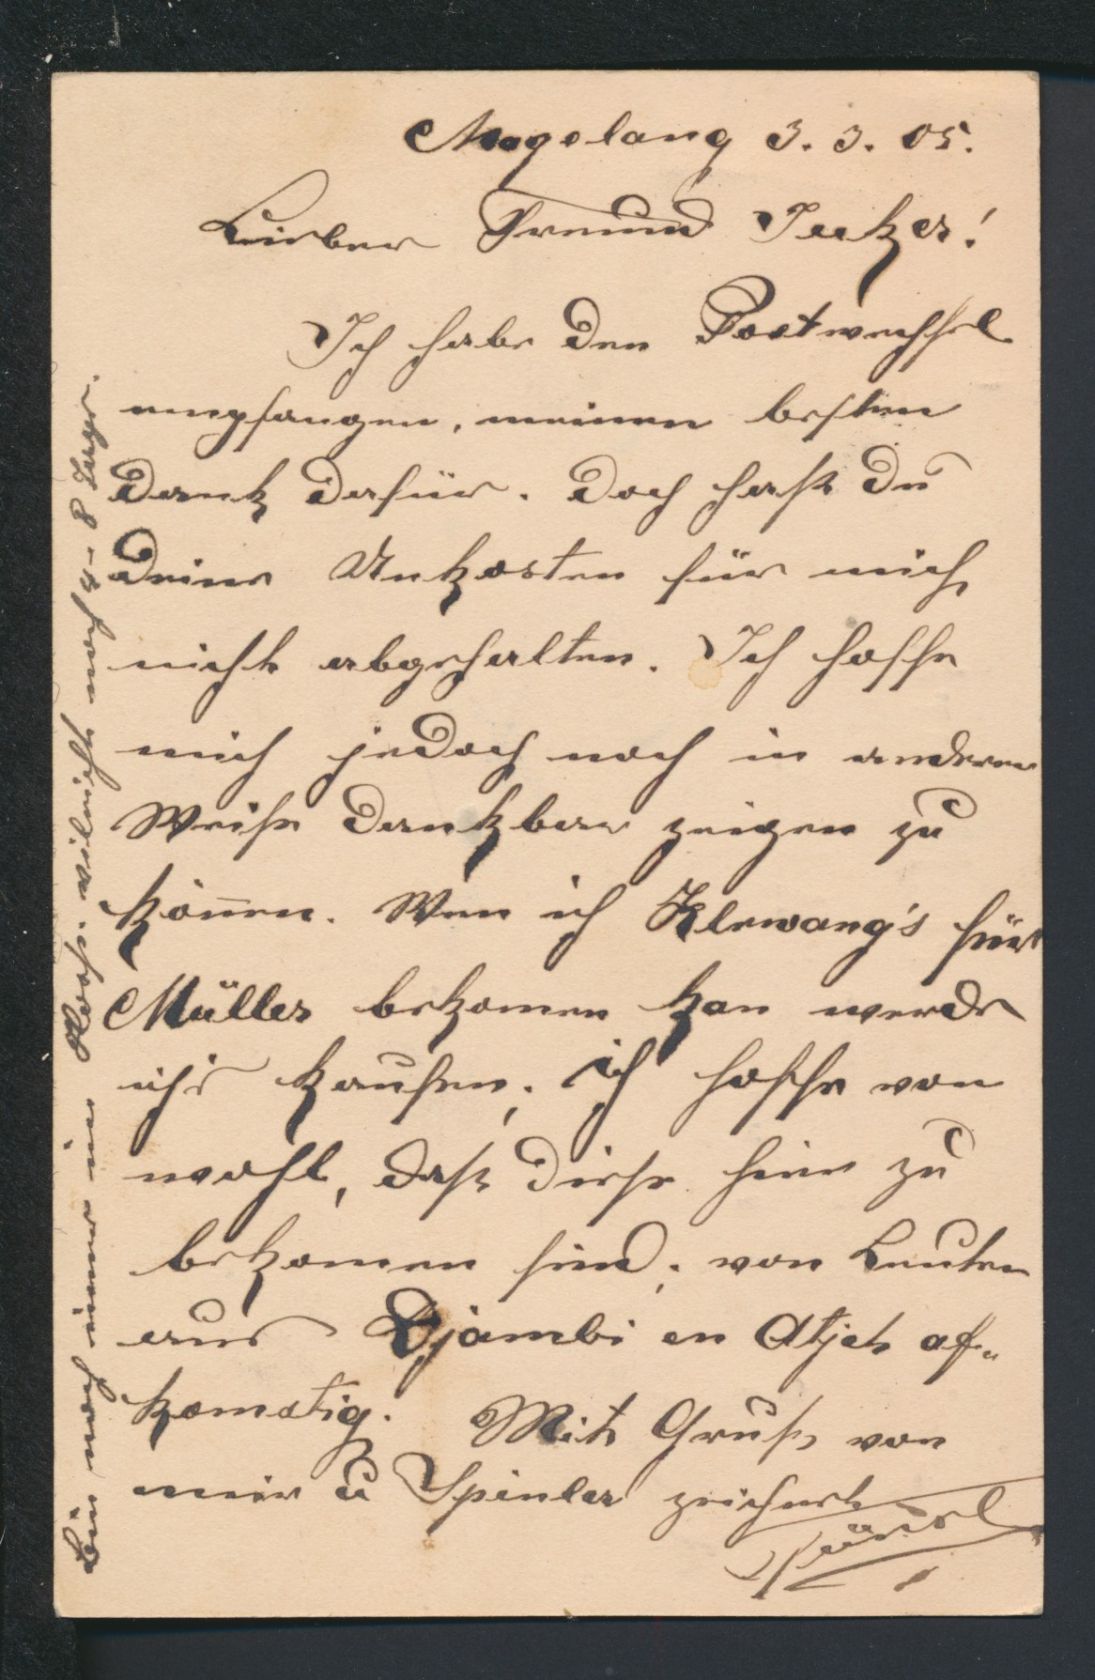 Magelang 3. 3. 05.
Lieber Freund Iutzer!
Ich habe den Postwechsel
empfangen, meinen besten
Dank dafür. Doch hast Du
Deine Unkosten für mich
nicht abgehalten. Ich hoffe
mich jedoch noch in anderer
Weise dankbar zeigen zu
könen. Wen ich Klewang's für
Müller bekomen kan werde
ich's kaufen; ich hoffe von
wohl, daß diese hier zu
bekomen sind; von Leuten
aus Djambi en Atjeh af„
komstig. Mit Gruß von
mir u Spinler zeichnet
noch
noch 4-8 Tage.